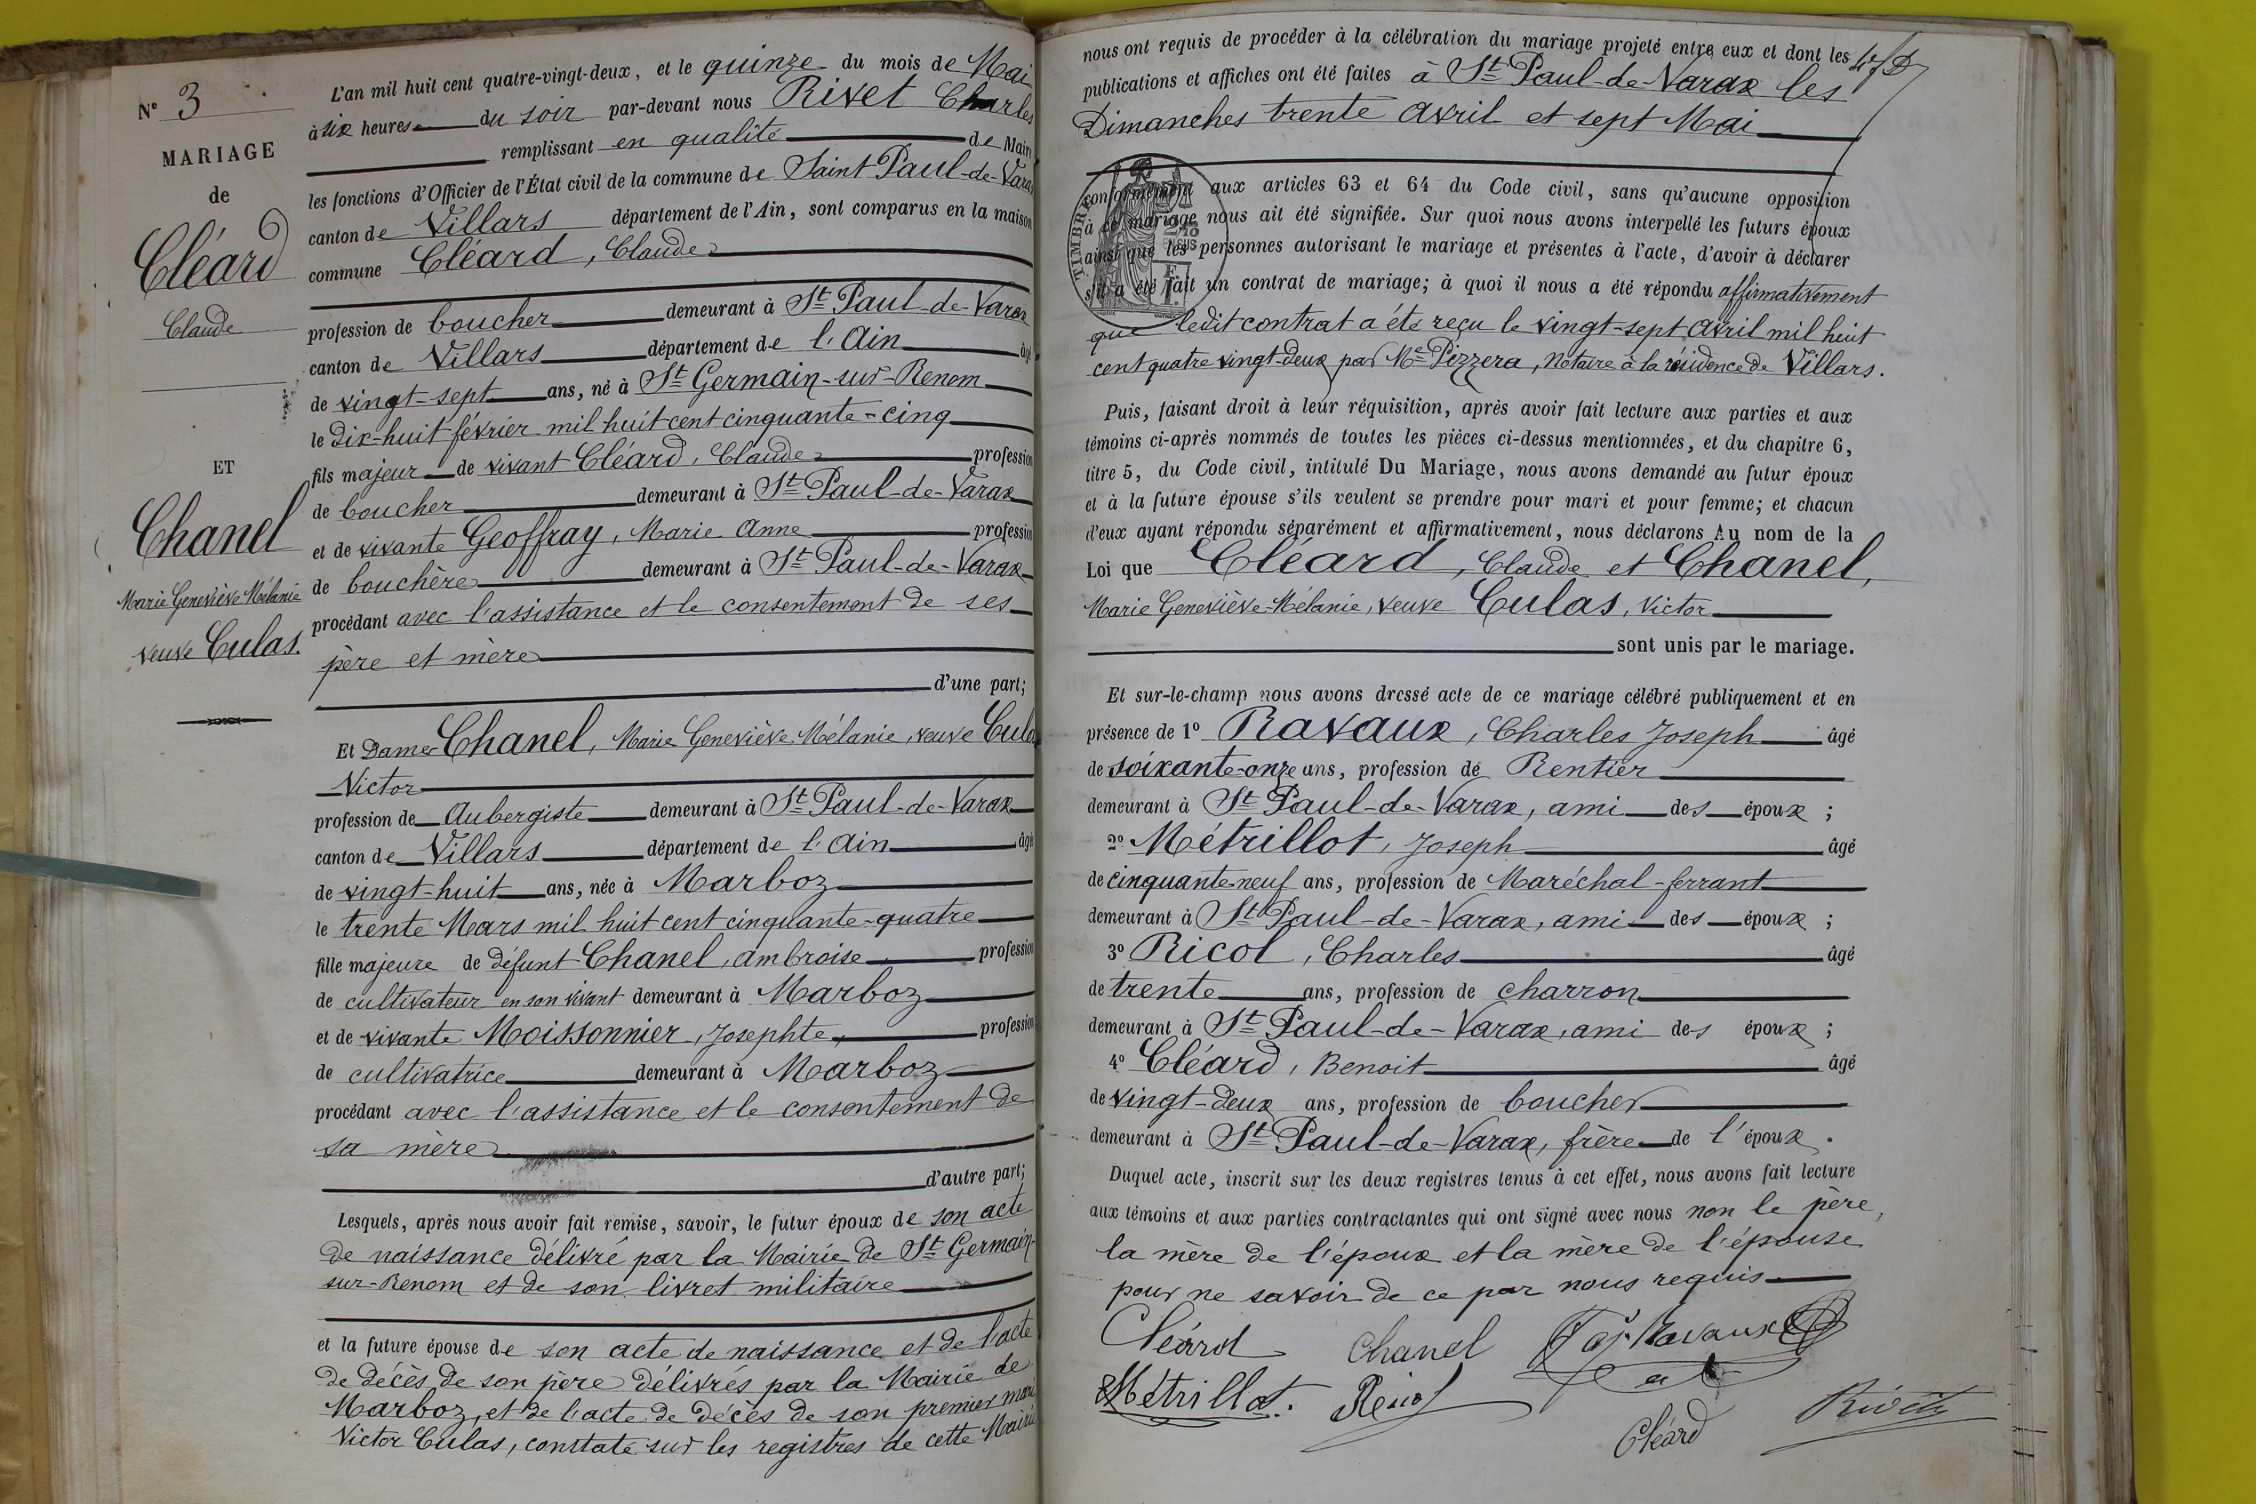 N° 3
MARIAGE
de
Cléard
Claude
ET
Chanel
Marie Geneviève Mélanie
veuve Culas.
L'an mil huit cent quatre-vingt-deux, et le quinze du mois de Mai
à six heures du soir par-devant nous Rivet Charles
remplissant en qualité de Maire
les fonctions d'Officier de l'État civil de la commune de Saint Paul-de-Varax
canton de Villars département de l'Ain, sont comparus en la maison
commune Cléard, Claude
profession de boucher demeurant à St Paul-de-Varax
canton de Villars département de l'Ain âgé
de vingt-sept ans, né à St Germain-sur-Renom
le dix-huit février mil huit cent cinquante-cinq
fils majeur de vivant Cléard, Claude profession
de boucher demeurant à St Paul-de-Varax
et de vivante Geoffray, Marie Anne profession
de bouchère demeurant à St Paul-de-Varax
procédant avec l'assistance et le consentement de ses
père et mère
d'une part;
Et Dame Chanel, Marie Geneviève Mélanie, veuve Culas
Victor
profession de Aubergiste demeurant à St Paul-de-Varax
canton de Villars département de l'Ain âgé
de vingt-huit ans, née à Marboz
le trente Mars mil huit cent cinquante-quatre
fille majeure de défunt Chanel, Ambroise profession
de cultivateur en son vivant demeurant à Marboz
et de vivante Moissonnier, Josephte, profession
de cultivatrice demeurant à Marboz
procédant avec l'assistance et le consentement de
sa mère
d'autre part;
Lesquels, après nous avoir fait remise, savoir, le futur époux de son acte
de naissance délivré par la Mairie de St Germain-
sur-Renom et de son livret militaire
et la future épouse de son acte de naissance et de l'acte
de décès de son père délivrés par la Mairie de
Marboz, et de l'acte de décès de son premier mari
Victor Culas, constaté sur les registres de cette Mairie
nous ont requis de procéder à la célébration du mariage projeté entre eux et dont les
publications et affiches ont été faites à St Paul-de-Varax les
Dimanches trente avril et sept Mai
conformément aux articles 63 et 64 du Code civil, sans qu'aucune opposition
à ce mariage nous ait été signifiée. Sur quoi nous avons interpellé les futurs époux
ainsi que les personnes autorisant le mariage et présentes à l'acte, d'avoir à déclarer
s'il a été fait un contrat de mariage; à quoi il nous a été répondu affirmativement
que ledit contrat a été reçu le vingt-sept avril mil huit
cent quatre vingt-deux par Me Pizzera, Notaire à la résidence de Villars.
TIMBRE
Puis, faisant droit à leur réquisition, après avoir fait lecture aux parties et aux
témoins ci-après nommés de toutes les pièces ci-dessus mentionnées, et du chapitre 6,
titre 5, du Code civil, intitulé Du Mariage, nous avons demandé au futur époux
et à la future épouse s'ils veulent se prendre pour mari et pour femme; et chacun
d'eux ayant répondu séparément et affirmativement, nous déclarons Au nom de la
Loi que Cléard, Claude et Chanel,
Marie Geneviève-Mélanie, veuve Culas, Victor
sont unis par le mariage.
Et sur-le-champ nous avons dressé acte de ce mariage célébré publiquement et en
présence de 1° Ravaux, Charles Joseph âgé
de soixante-onze ans, profession de Rentier
demeurant à St Paul-de-Varax, ami des époux ;
2° Métrillot, Joseph âgé
de cinquante-neuf ans, profession de Maréchal-ferrant
demeurant à St Paul-de-Varax, ami des époux ;
3° Ricol, Charles âgé
de trente ans, profession de charron
demeurant à St Paul-de-Varax, ami des époux ;
4° Cléard, Benoit âgé
de vingt-deux ans, profession de boucher
demeurant à St Paul-de-Varax, frère de l'époux.
Duquel acte, inscrit sur les deux registres tenus à cet effet, nous avons fait lecture
aux témoins et aux parties contractantes qui ont signé avec nous non le père,
la mère de l'époux et la mère de l'épouse
pour ne savoir de ce par nous requis
Cléard Chanel Ravaux
Métrillot. Ricol
Cléard Rivet